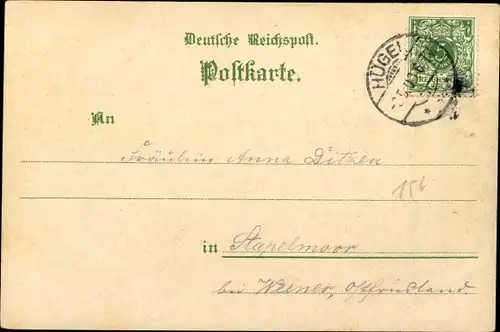 Deutsche Reichspost.
Postkarte.
HÜGEL
An
Fräulein Anna Ditzen
156
in Stapelmoor
bei Weener, Ostfriesland.